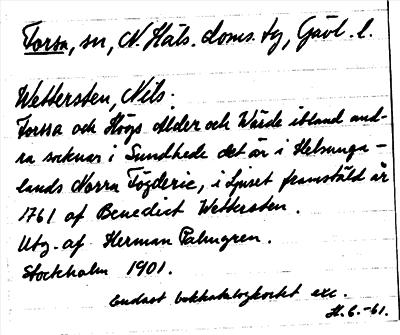 Forsa, sn, N. Häls. doms. tg, Gävl. l.
Wettersten, Nils.
Forssa och Högs Alder och Wärde ibland and-
ra socknar i Sundhede det är i Helsinga-
lands Norra Fögderie, i ljuset framstäld år
1761 af Benedict Wettersten.
Utg. af Herman Palmgren.
Stockholm 1901.
Endast bokkatalogkortet exc.
H.6.-61.